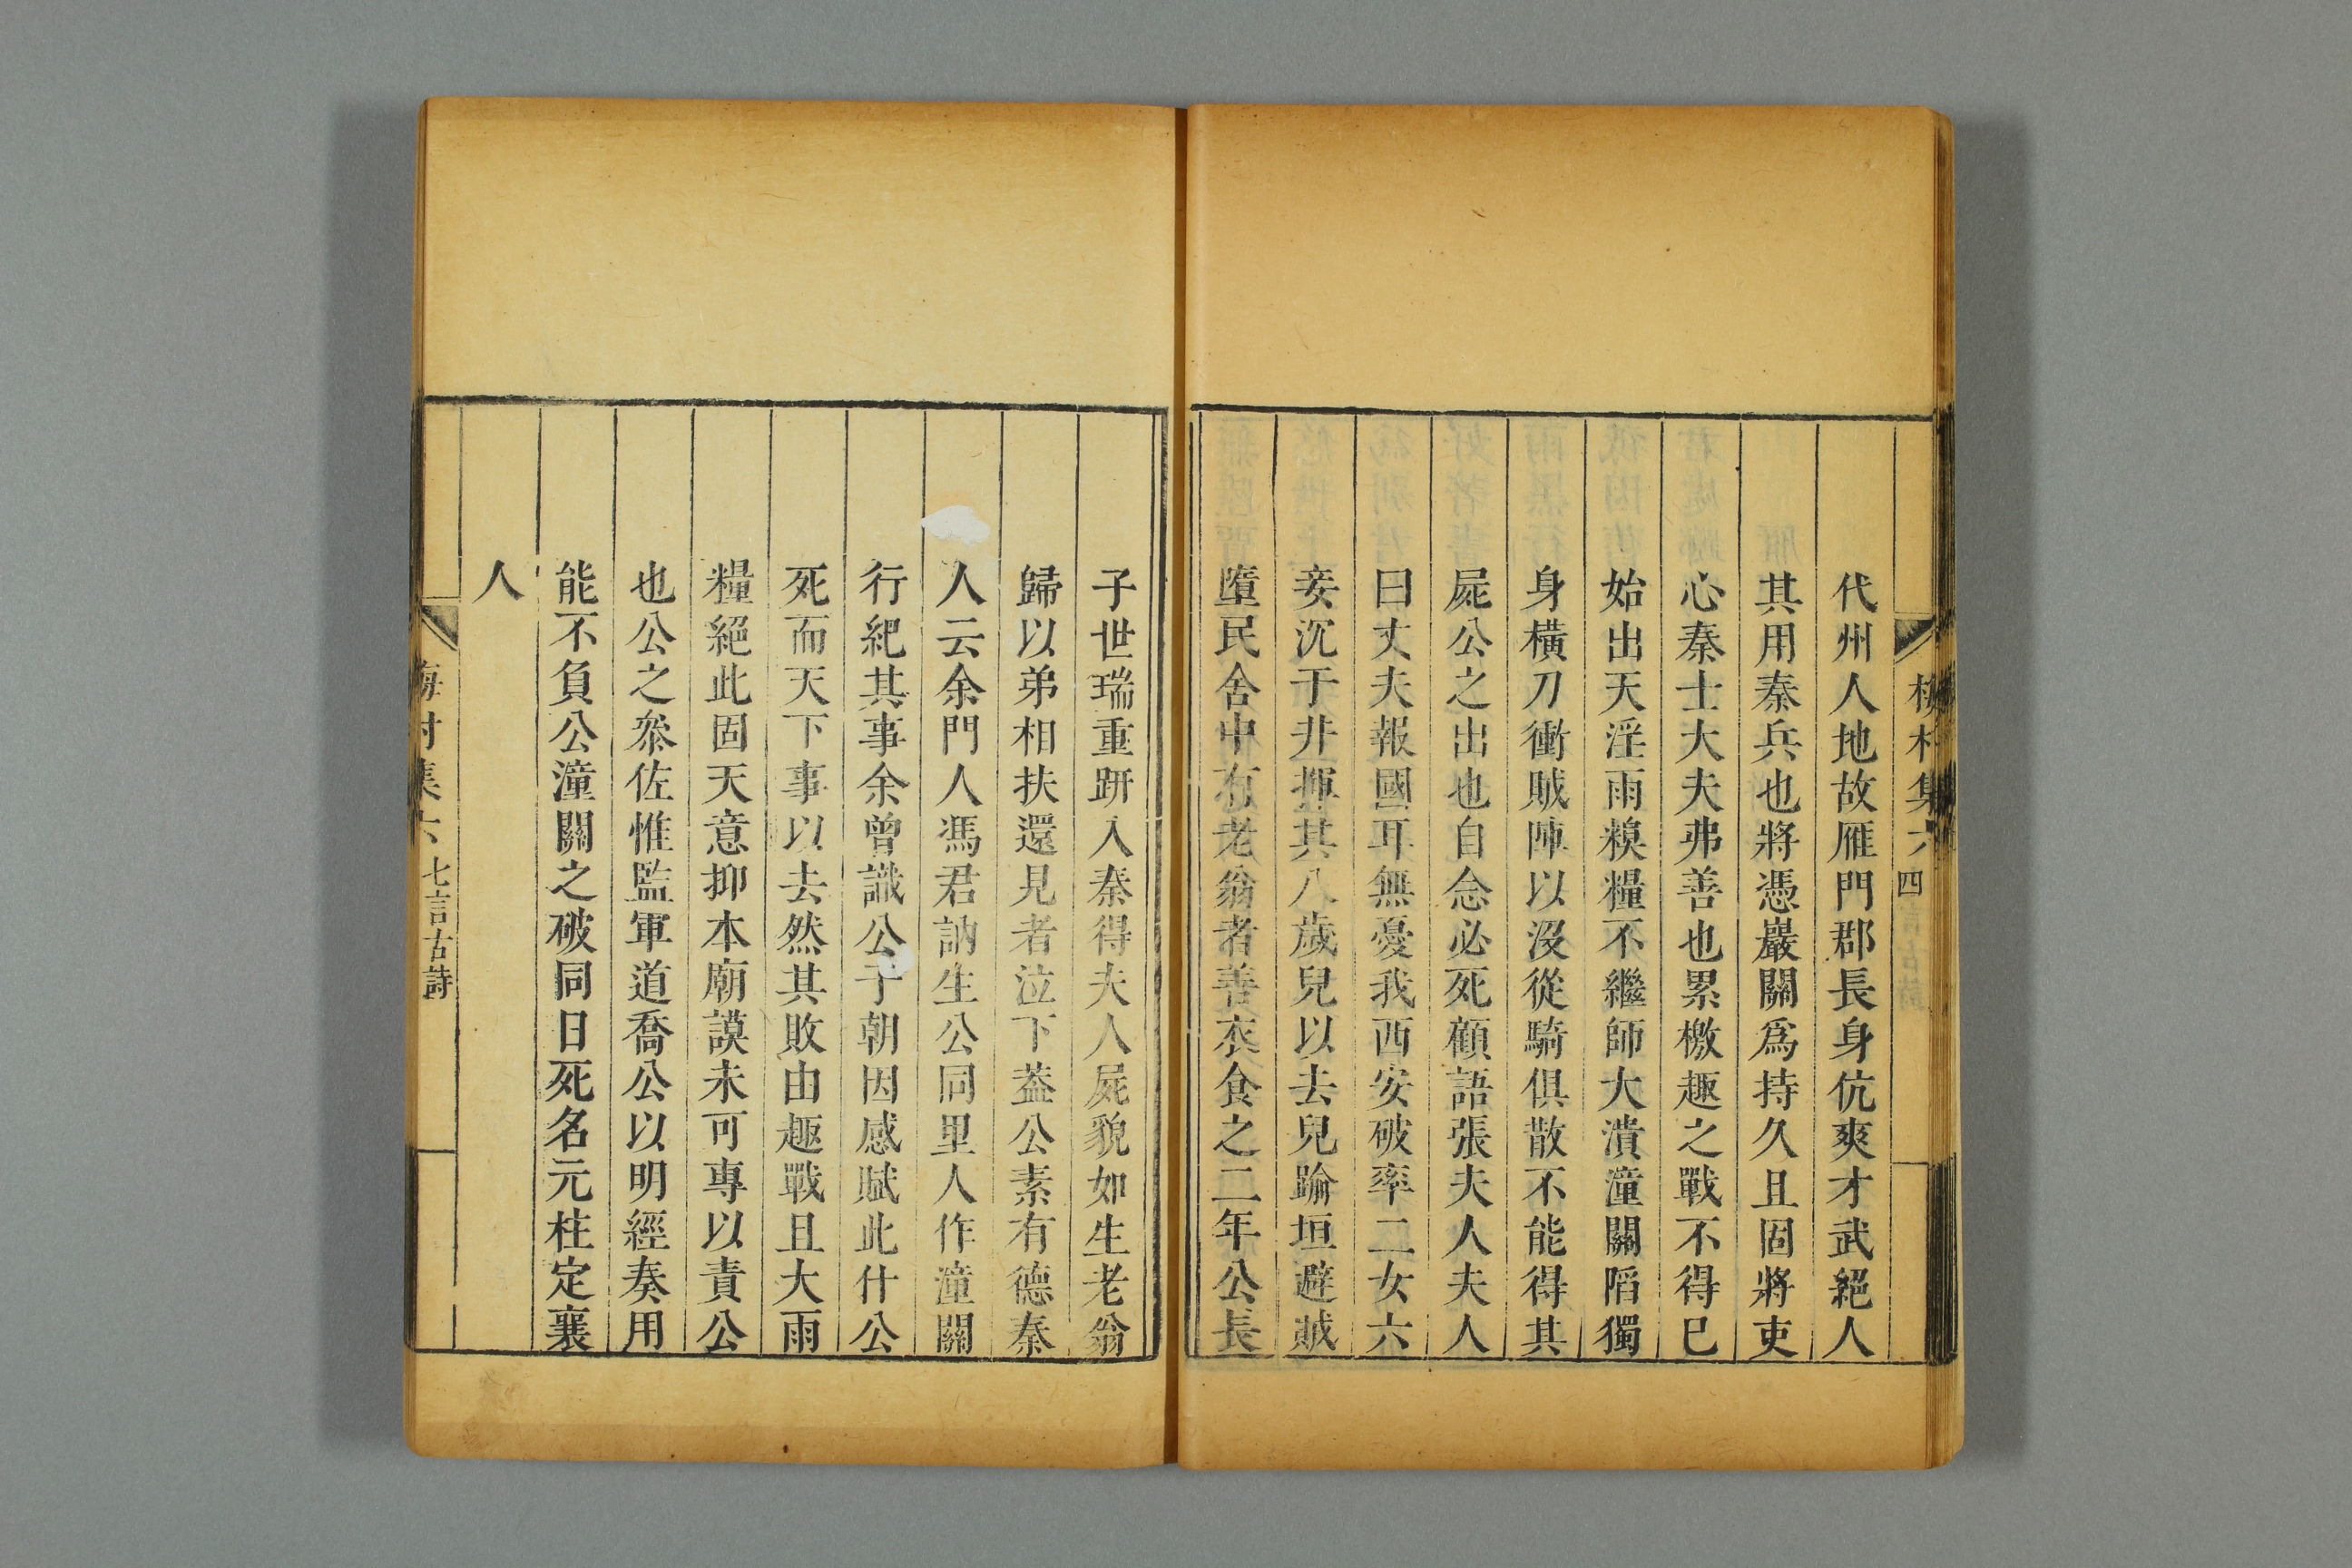 梅村集六
四
代州人地故雁門郡長身伉爽才武絕人
其用秦兵也將憑巖關爲持久且固將吏
心秦士大夫弗善也累檄趣之戰不得已
始出天淫雨糗糧不繼師大潰潼關陷獨
身橫刀衝賊陣以沒從騎俱散不能得其
屍公之出也自念必死顧語張夫人夫人
曰丈夫報國耳無憂我西安破率二女六
妾沉于井揮其八歲兒以去兒踰垣避賊
墮民舍中有老翁者善衣食之二年公長
子世瑞重趼入秦得夫人屍貌如生老翁
歸以弟相扶還見者泣下蓋公素有德秦
人云余門人馮君訥生公同里人作潼關
行紀其事余曾識公于朝因感賦此什公
死而天下事以去然其敗由趣戰且大雨
糧絕此固天意抑本廟謨未可專以責公
也公之叅佐惟監軍道喬公以明經奏用
能不負公潼關之破同日死名元柱定襄
人
梅村集六
七言古詩